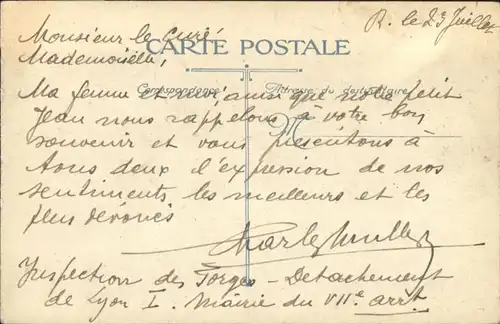 R. le 23 Juillet
Monsieur le Curé,
Mademoiselle,
CARTE POSTALE
Correspondance
Adresse du destinataire
Ma femme et moi, ainsi que notre petit
Jean nous rappelons à votre bon
M
souvenir et vous présentons à
tous deux l'expression de nos
sentiments les meilleurs et les
plus dévoués
Charles Muller
Inspection des Forges - Detachement
de Lyon I. Mairie du VIIe arrt